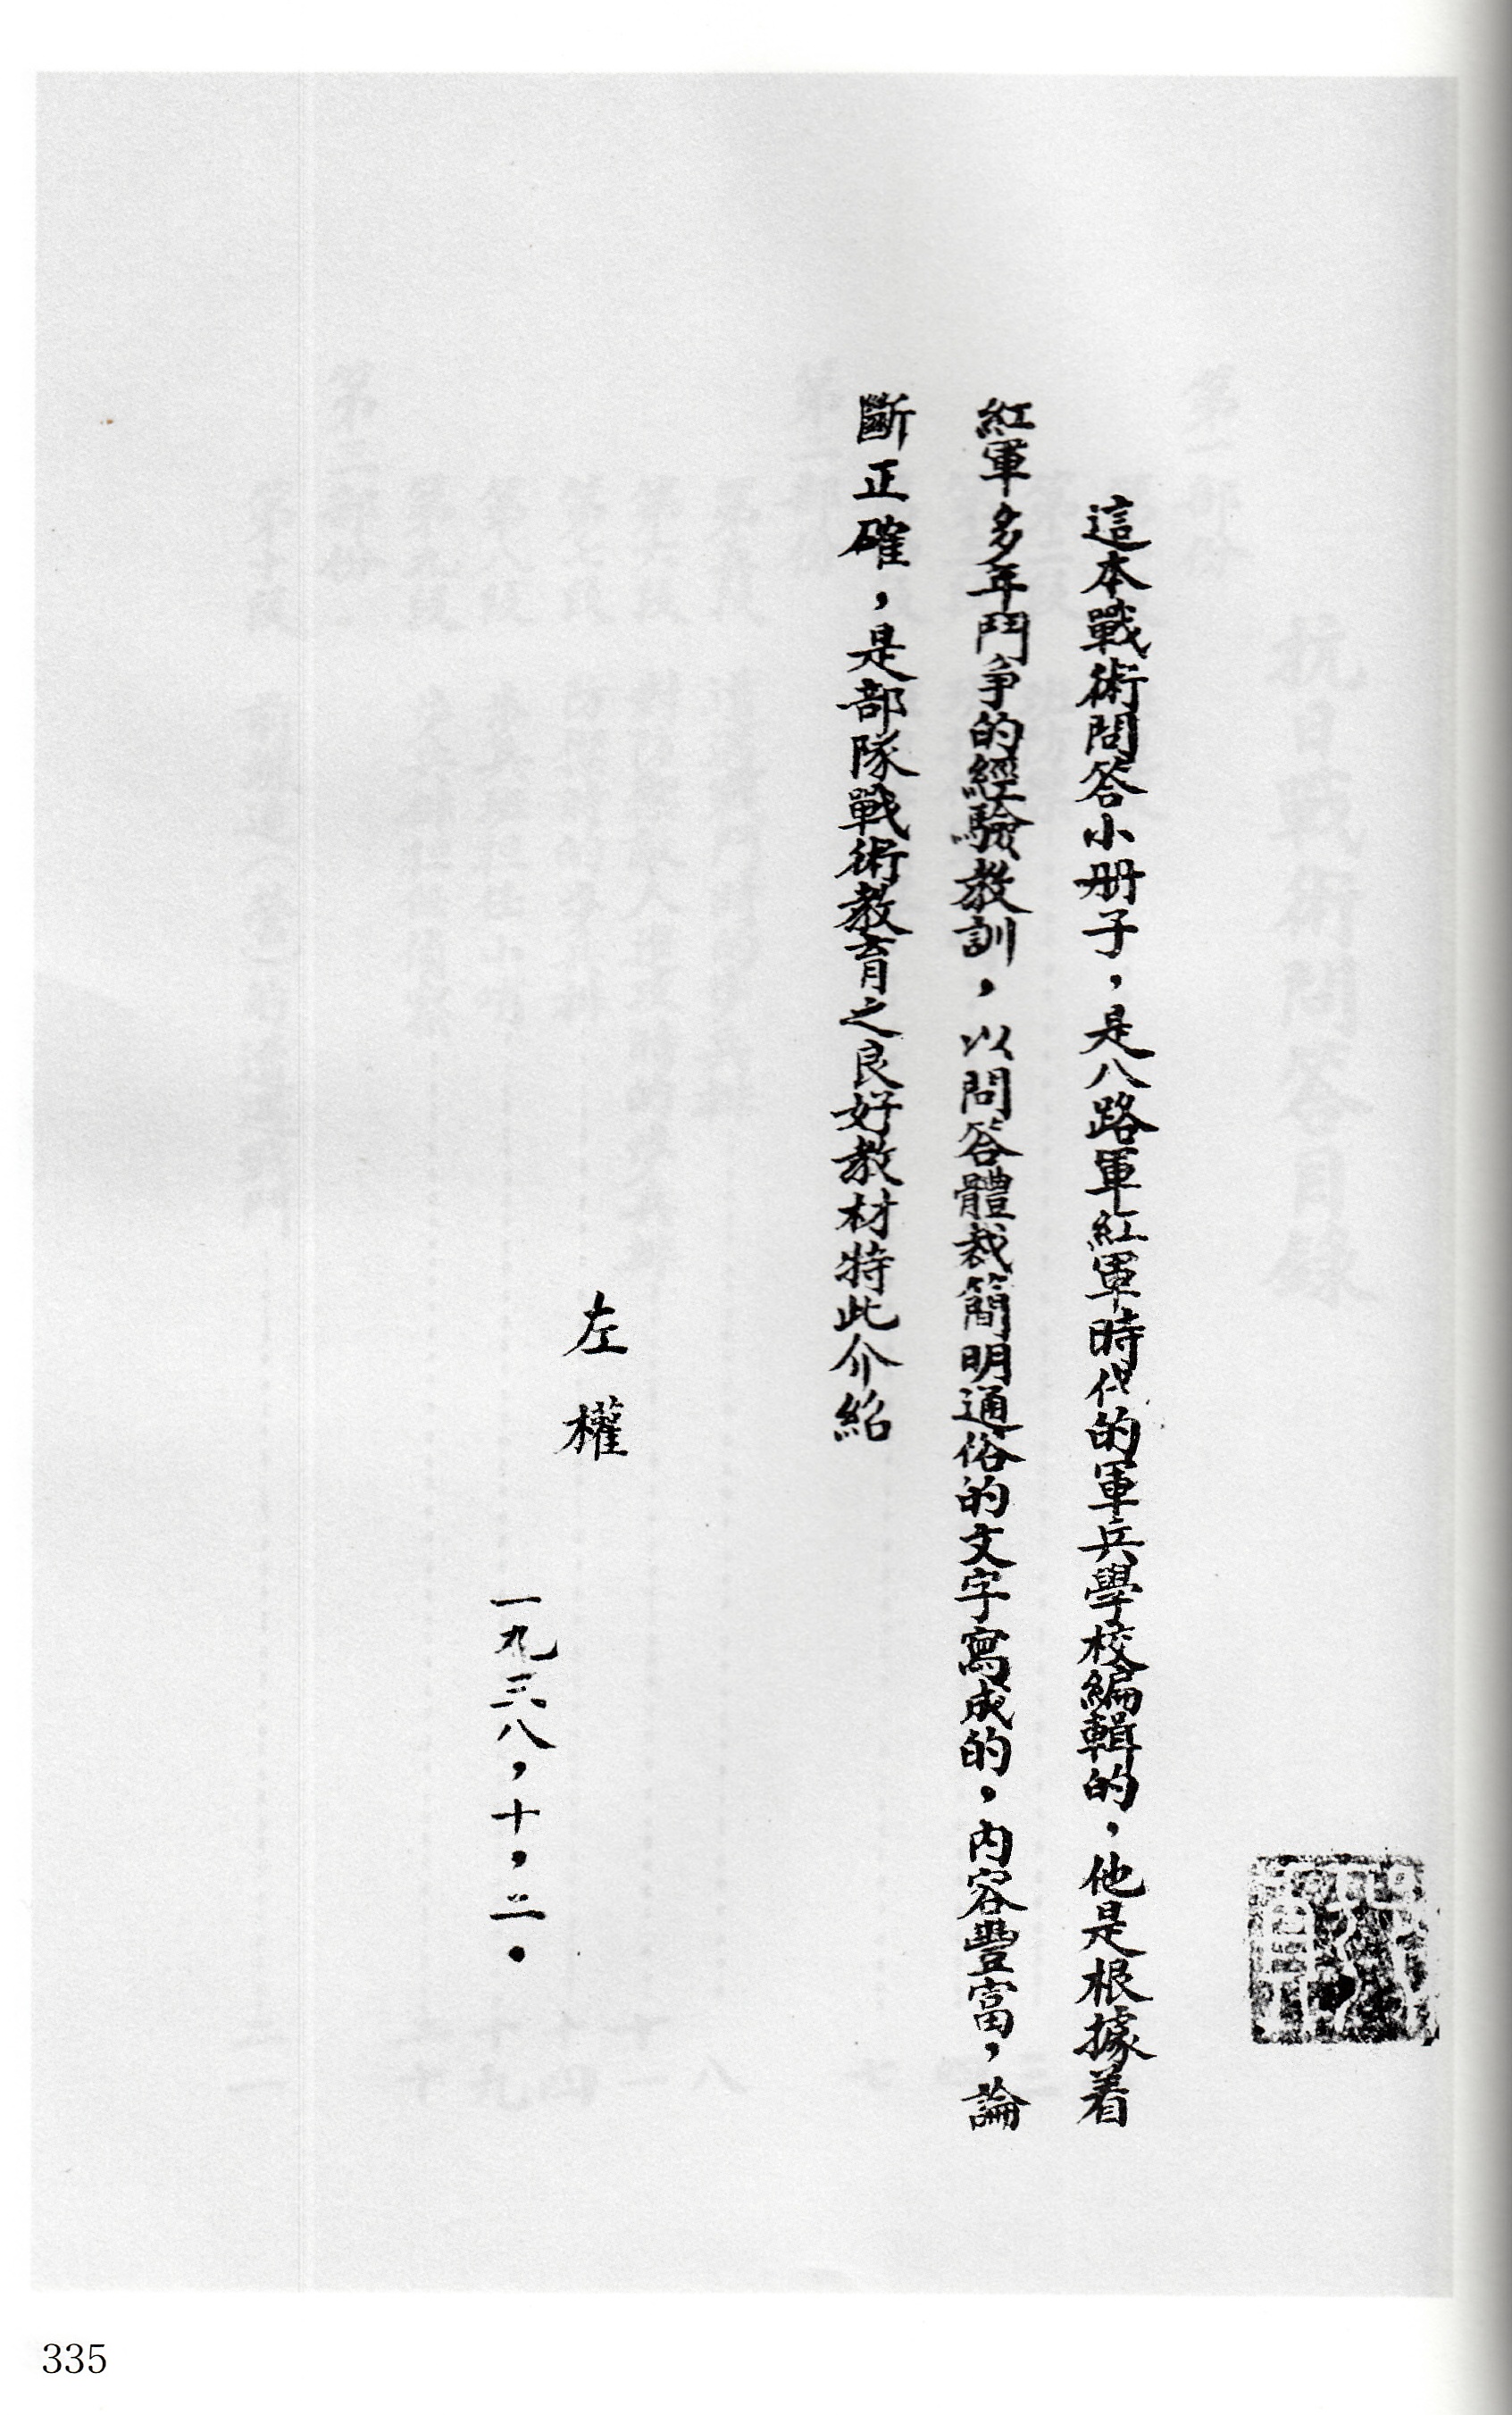 這本戰術問答小册子，是八路軍紅軍時代的軍兵學校編輯的，他是根據着
紅軍多年鬥争的經驗教訓，以問答體裁簡明通俗的文字寫成的，内容豐富，論
斷正確，是部隊戰術教育之良好教材特此介紹
左權
一九三八，十，二。
335